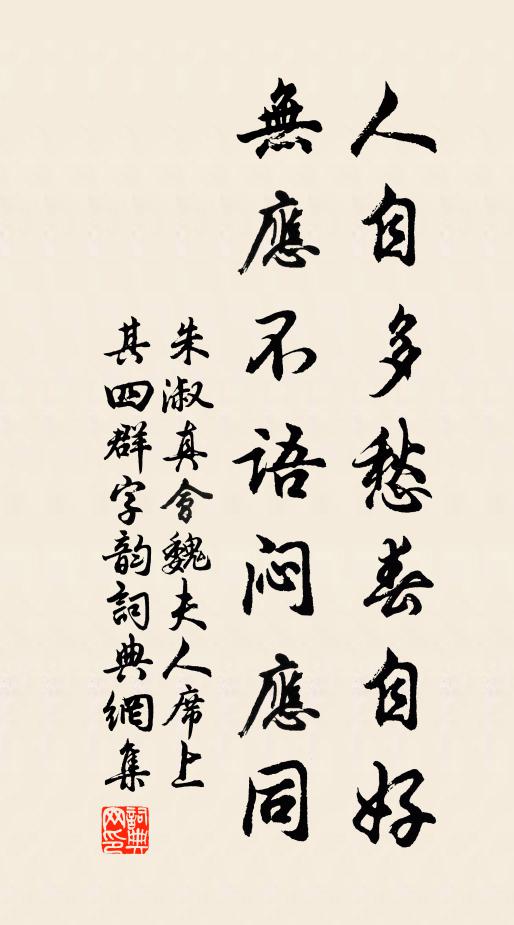 人自多愁春自好
無應不語悶應同
朱淑真會魏夫人席上
其四群字韵詞典網集
詞典
网印